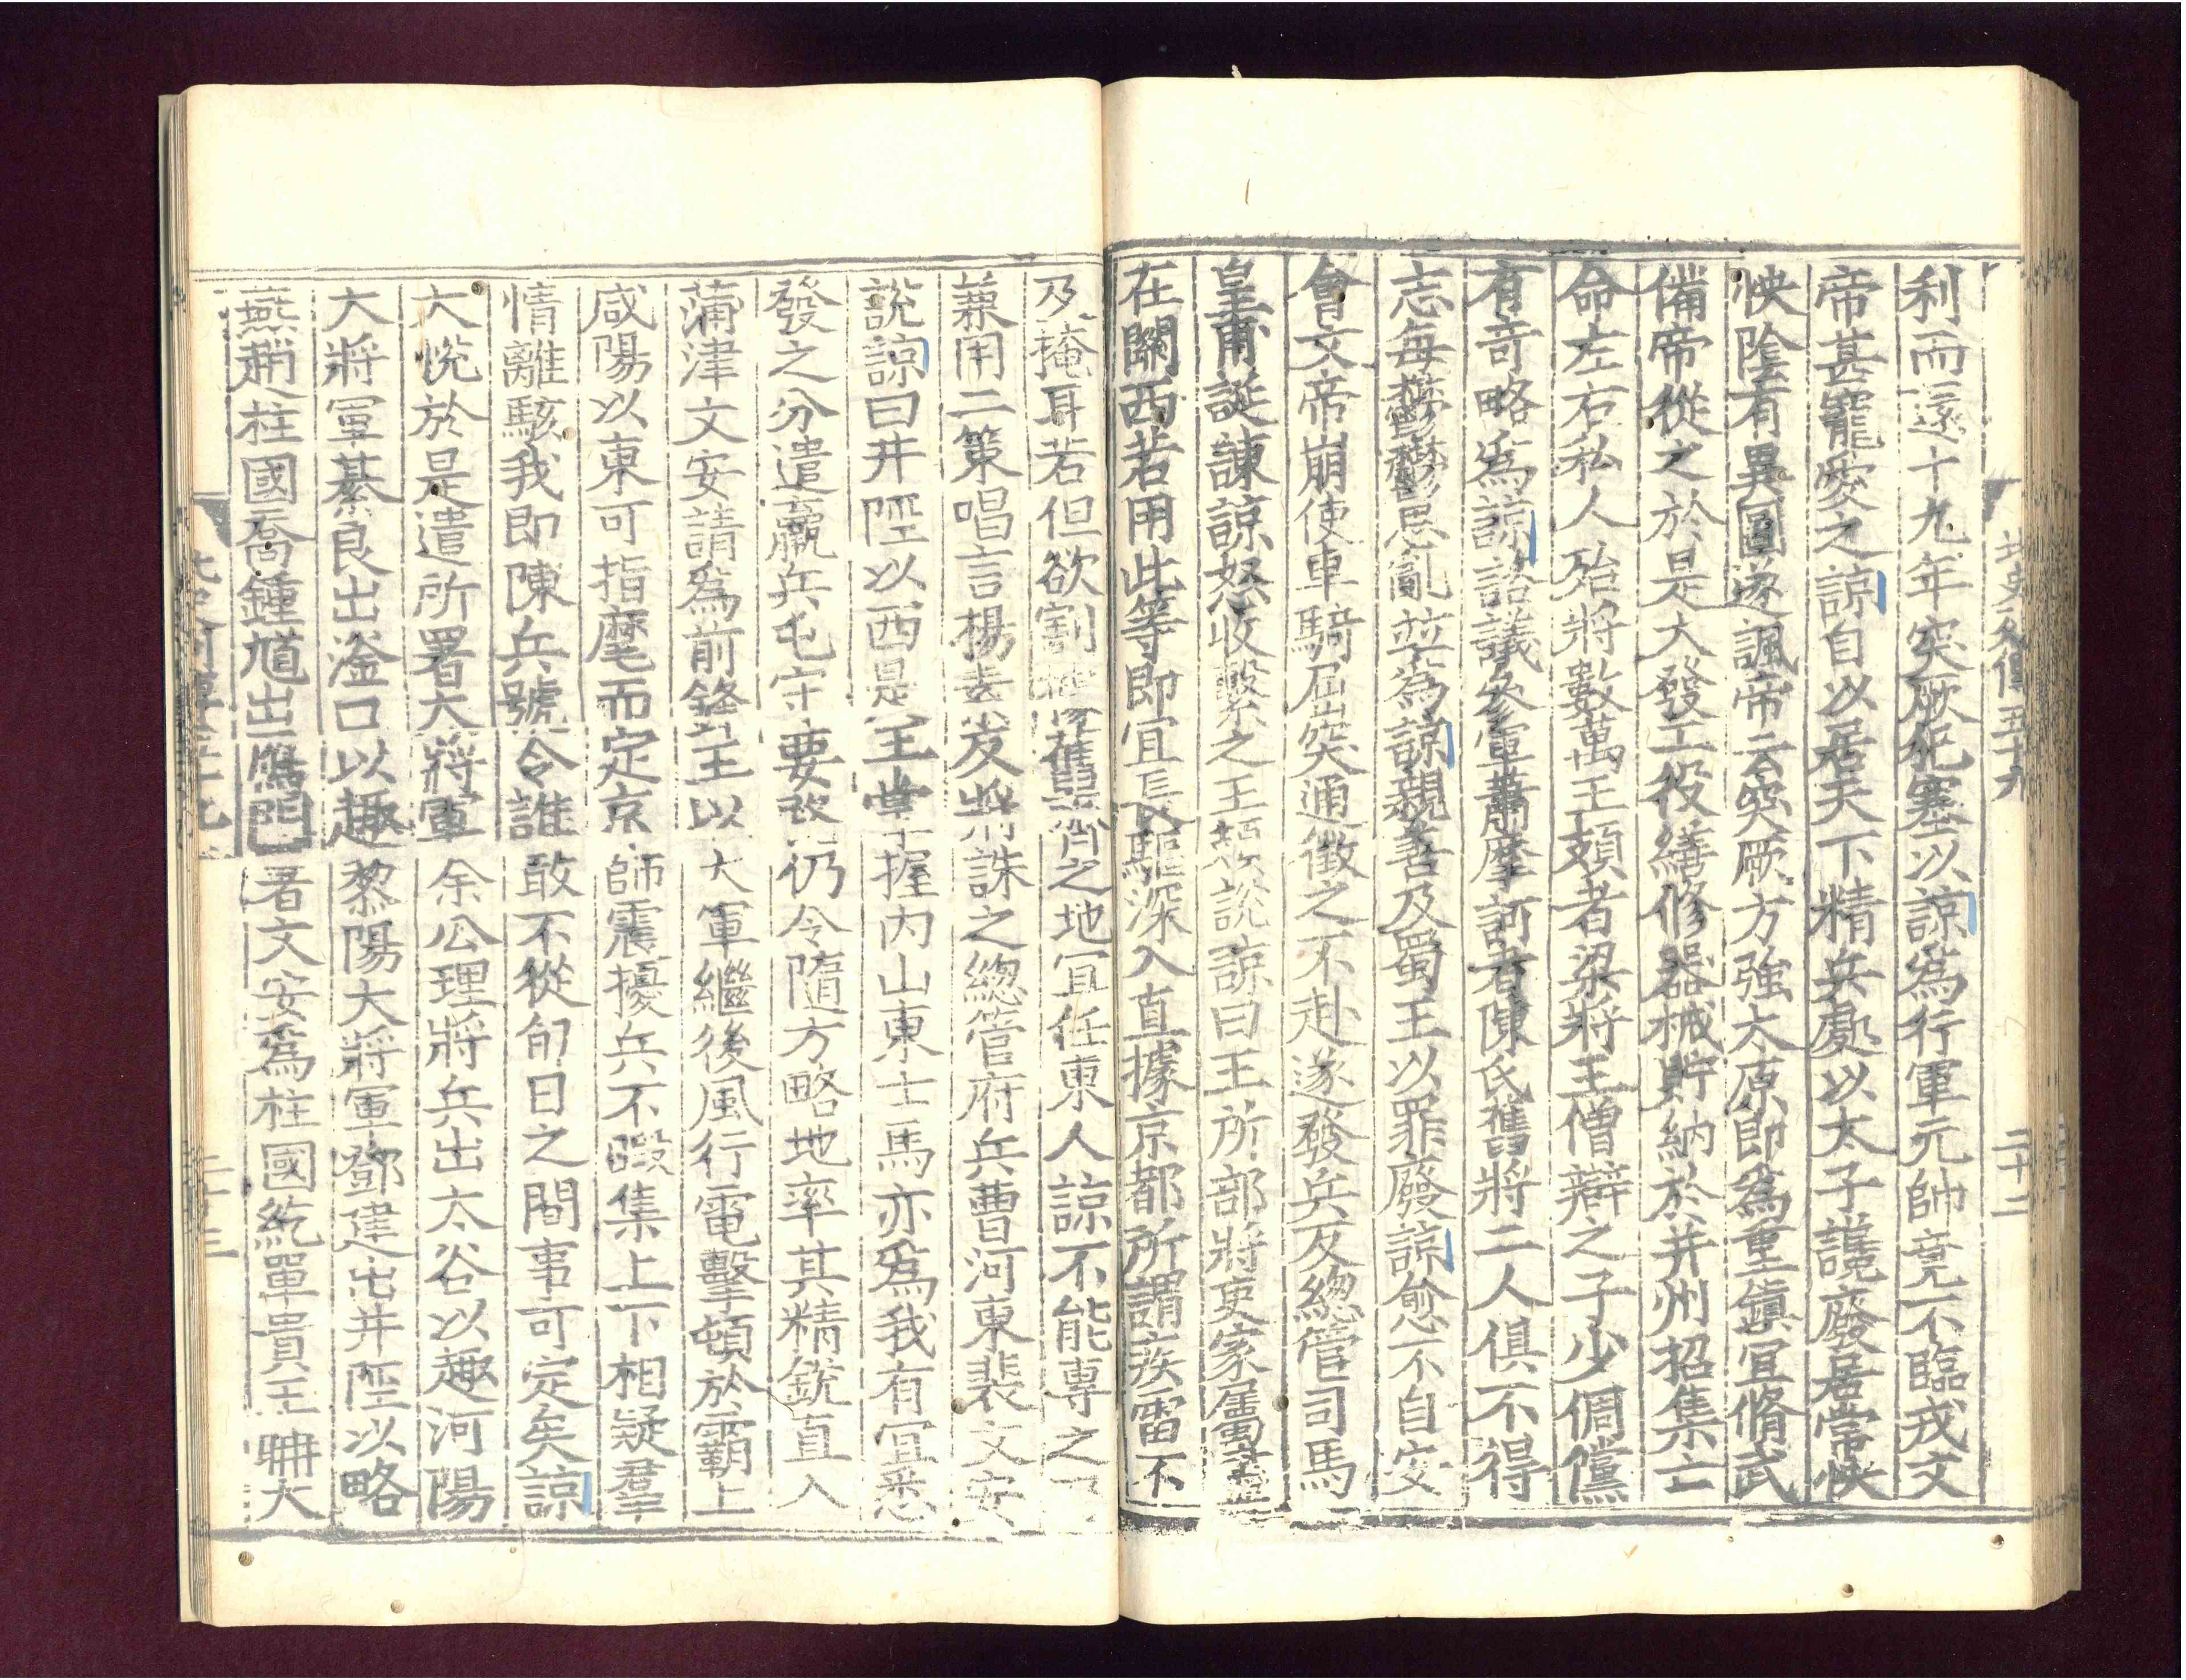 北史列傳五十九
二十二
利而還十九年突厥犯塞以諒爲行軍元帥竟不臨戎文
帝甚寵愛之諒自以居天下精兵處以太子讒廢居常怏
怏陰有異圖遂諷帝云突厥方強太原即爲重鎮宜脩武
備帝從之於是大發工役繕修器械貯納於并州招集亡
命左右私人殆將數萬王頍者梁將王僧辯之子少倜儻
有奇略爲諒諮議參軍蕭摩訶者陳氏舊將二人俱不得
志每鬱鬱思亂並爲諒親善及蜀王以罪廢諒愈不自安
會文帝崩使車騎屈突通徵之不赴遂發兵反總管司馬
皇甫誕諫諒怒收繫之王頍說諒曰王所部將吏家屬盡
在關西若用此等即宜長驅深入直據京都所謂疾雷不
及掩耳若但欲割據舊齊之地宜任東人諒不能專之乃
兼用二策唱言楊素反將誅之總管府兵曹河東裴文安
說諒曰井陘以西是王掌握內山東士馬亦爲我有宜悉
發之分遣羸兵屯守要路仍令隨方略地率其精銳直入
蒲津文安請爲前鋒王以大軍繼後風行電擊頓於霸上
咸陽以東可指麾而定京師震擾兵不暇集上下相疑羣
情離駭我即陳兵號令誰敢不從旬日之間事可定矣諒
大悅於是遣所署大將軍余公理將兵出太谷以趣河陽
大將軍綦良出滏口以趣黎陽大將軍鄧建出井陘以略
燕趙柱國喬鍾馗出鴈門署文安爲柱國紇單貴王聃大
二十三